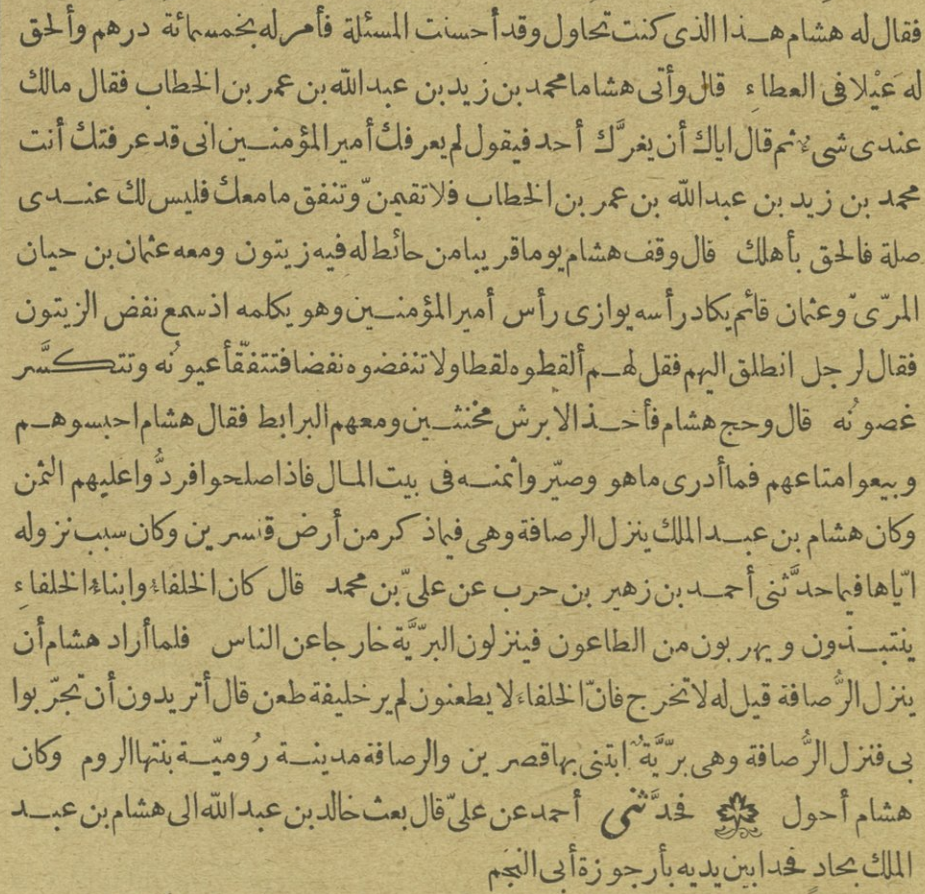 فقال له هشام هذا الذى كنت تحاول وقد أحسنت المسئلة فأمر له بخمسمائة درهم وألحق
له عَيْلا فى العطاء قال وأتى هشاما محمد بن زيد بن عبد الله بن عمر بن الخطاب فقال مالك
عندى شىء ثم قال اياك أن يغرَّك أحد فيقول لم يعرفك أمير المؤمنين انى قد عرفتك أنت
محمد بن زيد بن عبد الله بن عمر بن الخطاب فلا تقيمنّ وتنفق ما معك فليس لك عندى
صلة فالحق بأهلك قال وقف هشام يوما قريبا من حائط له فيه زيتون ومعه عثمان بن حيان
المرّىّ وعثمان قائم يكاد رأسه يوازى رأس أمير المؤمنين وهو يكلمه اذ سمع نفض الزيتون
فقال لرجل انطلق اليهم فقل لهم ألقطوه لقطا ولا تنفضوه نفضا فتتفقّأ عيونُه وتتكسَّر
غصونُه قال وحج هشام فأخذ الأبرش مخنثين ومعهم البرابط فقال هشام احبسوهم
وبيعوا متاعهم فما أدرى ما هو وصيّروا ثمنه فى بيت المال فاذا صلحوا فردُّوا عليهم الثمن
وكان هشام بن عبد الملك ينزل الرصافة وهى فيما ذكر من أرض قنسرين وكان سبب نزوله
ايّاها فيما حدَّثنى أحمد بن زهير بن حرب عن علىّ بن محمد قال كان الخلفاء وابناء الخلفاء
ينتبذون ويهربون من الطاعون فينزلون البرّيَّة خارجا عن الناس فلما أراد هشام أن
ينزل الرُّصافة قيل له لا تخرج فانّ الخلفاء لا يطعنون لم ير خليفة طعن قال أتريدون أن تجرّبوا
بى فنزل الرُّصافة وهى برّيَّةٌ ابتنى بها قصرين والرصافة مدينة رُوميّة بنتها الروم وكان
هشام أحول فحدَّثنى أحمد عن علىّ قال بعث خالد بن عبد الله الى هشام بن عبد
الملك بحاد فحدا بين يديه بأرجوزة أبى النجم